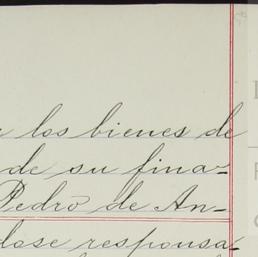 los bienes de
de su fina-
Pedro de An-
dose responsa-